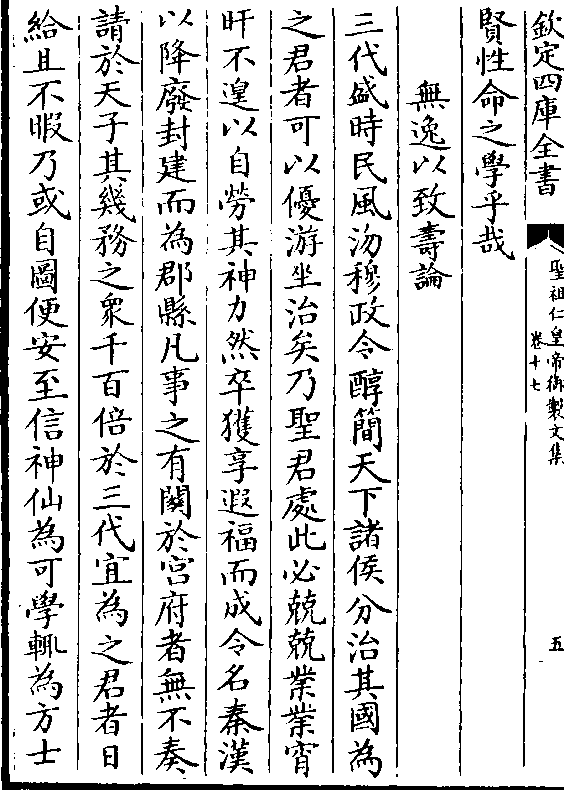 欽定四庫全書
聖祖仁皇帝御製文集
卷十七
五
賢性命之學乎哉
無逸以致壽論
三代盛時民風沕穆政令醇簡天下諸侯分治其國為
之君者可以優游坐治矣乃聖君處此必兢兢業業宵
旰不遑以自勞其神力然卒獲享遐福而成令名秦漢
以降廢封建而為郡縣凡事之有關於宮府者無不奏
請於天子其幾務之衆千百倍於三代宜為之君者日
給且不暇乃或自圖便安至信神仙為可學輒為方士